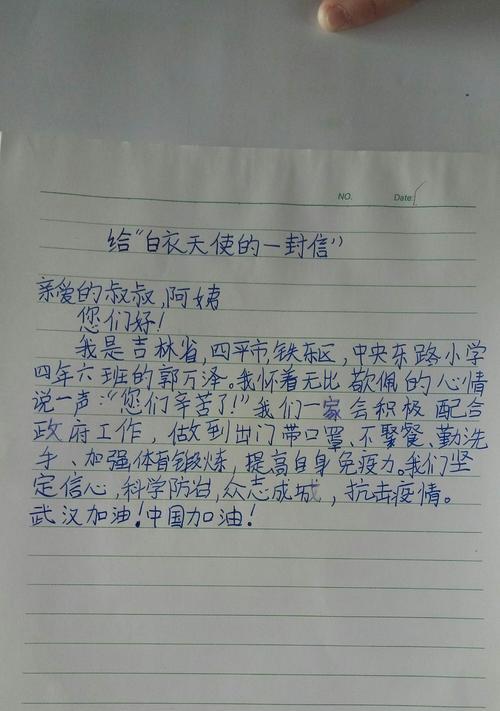 NO.
Date:
给“白衣天使的一封信”
亲爱的叔叔,阿姨
您们好!
我是吉林省,四平市,铁东区,中央东路小学
四年六班的郭万泽。我怀着无比敬佩的心情
说一声:“您们辛苦了!”我们一家会积极配合
政府工作,做到出门带口罩、不聚餐、勤洗
手、加强体育锻炼,提高自身免疫力。我们坚
定信心,科学防治,众志成城,抗击疫情。
武汉加油!中国加油!